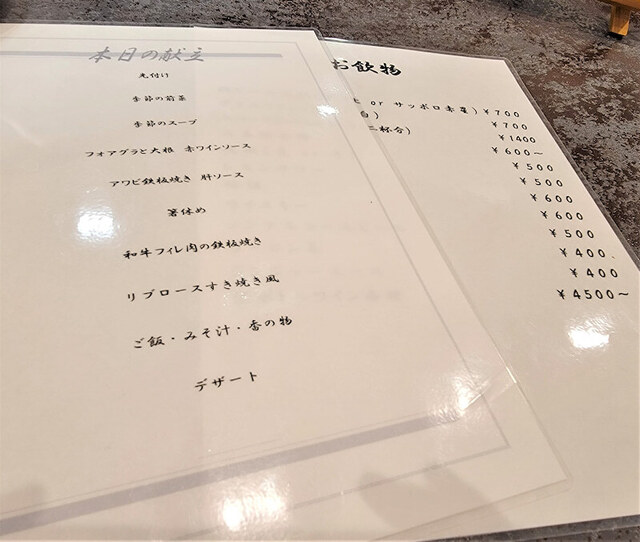 本日の献立
先付け
季節の前菜
季節のスープ
フォアグラと大根 赤ワインソース
アワビ鉄板焼き 肝ソース
箸休め
和牛フィレ肉の鉄板焼き
リブロースすき焼き風
ご飯・みそ汁・香の物
デザート
お飲物
or サッポロ赤星)¥700
白) ¥700
二杯合) ¥1400
¥600~
¥500
¥500
¥600
¥600
¥500
¥400
¥400
¥4500~